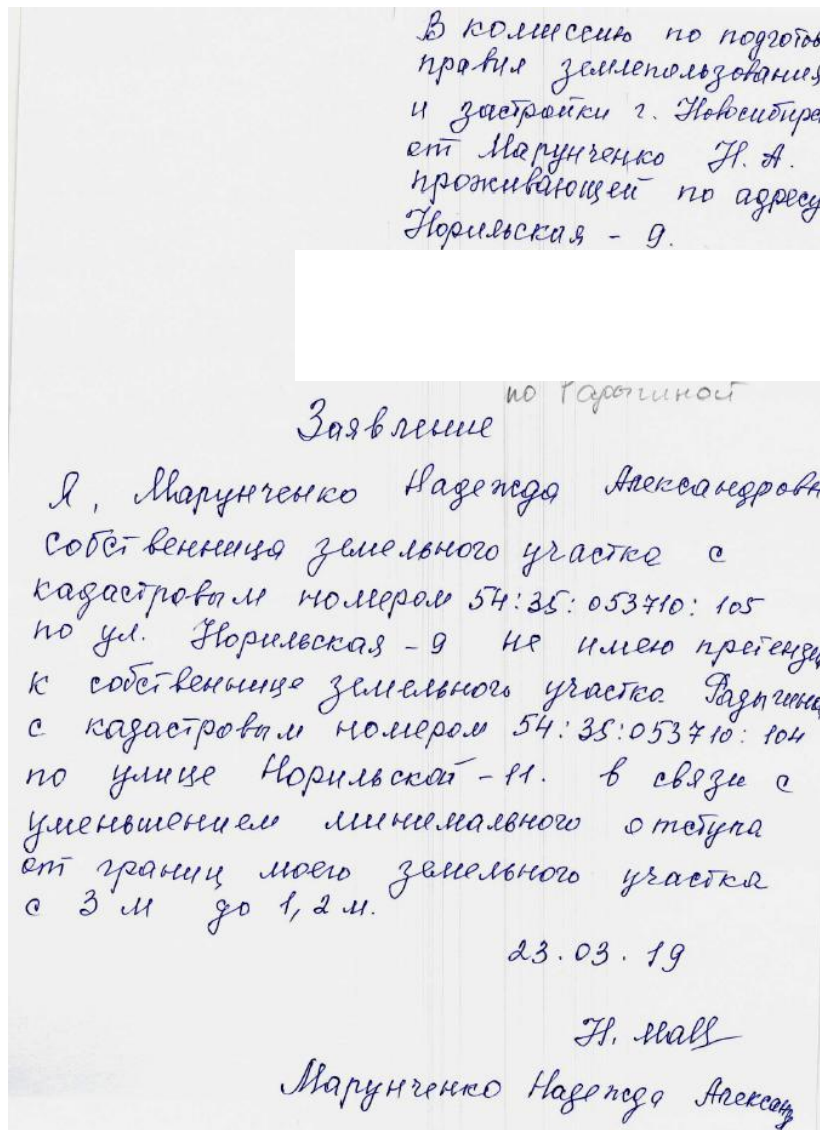 В комиссию по подготов
правил землепользования
и застройки г. Новосибирс
от Марунченко Н. А.
проживающей по адресу
Норильская - 9.
по Радыгиной
Заявление
Я, Марунченко Надежда Александровн
собственница земельного участка с
кадастровым номером 54:35:053710:105
по ул. Норильская - 9 не имею претензи
к собственнице земельного участка Радыгина
с кадастровым номером 54:35:053710:104
по улице Норильской - 11. в связи с
уменьшением минимального отступа
от границ моего земельного участка
с 3 м до 1,2 м.
23.03.19
Марунченко Надежда Александ